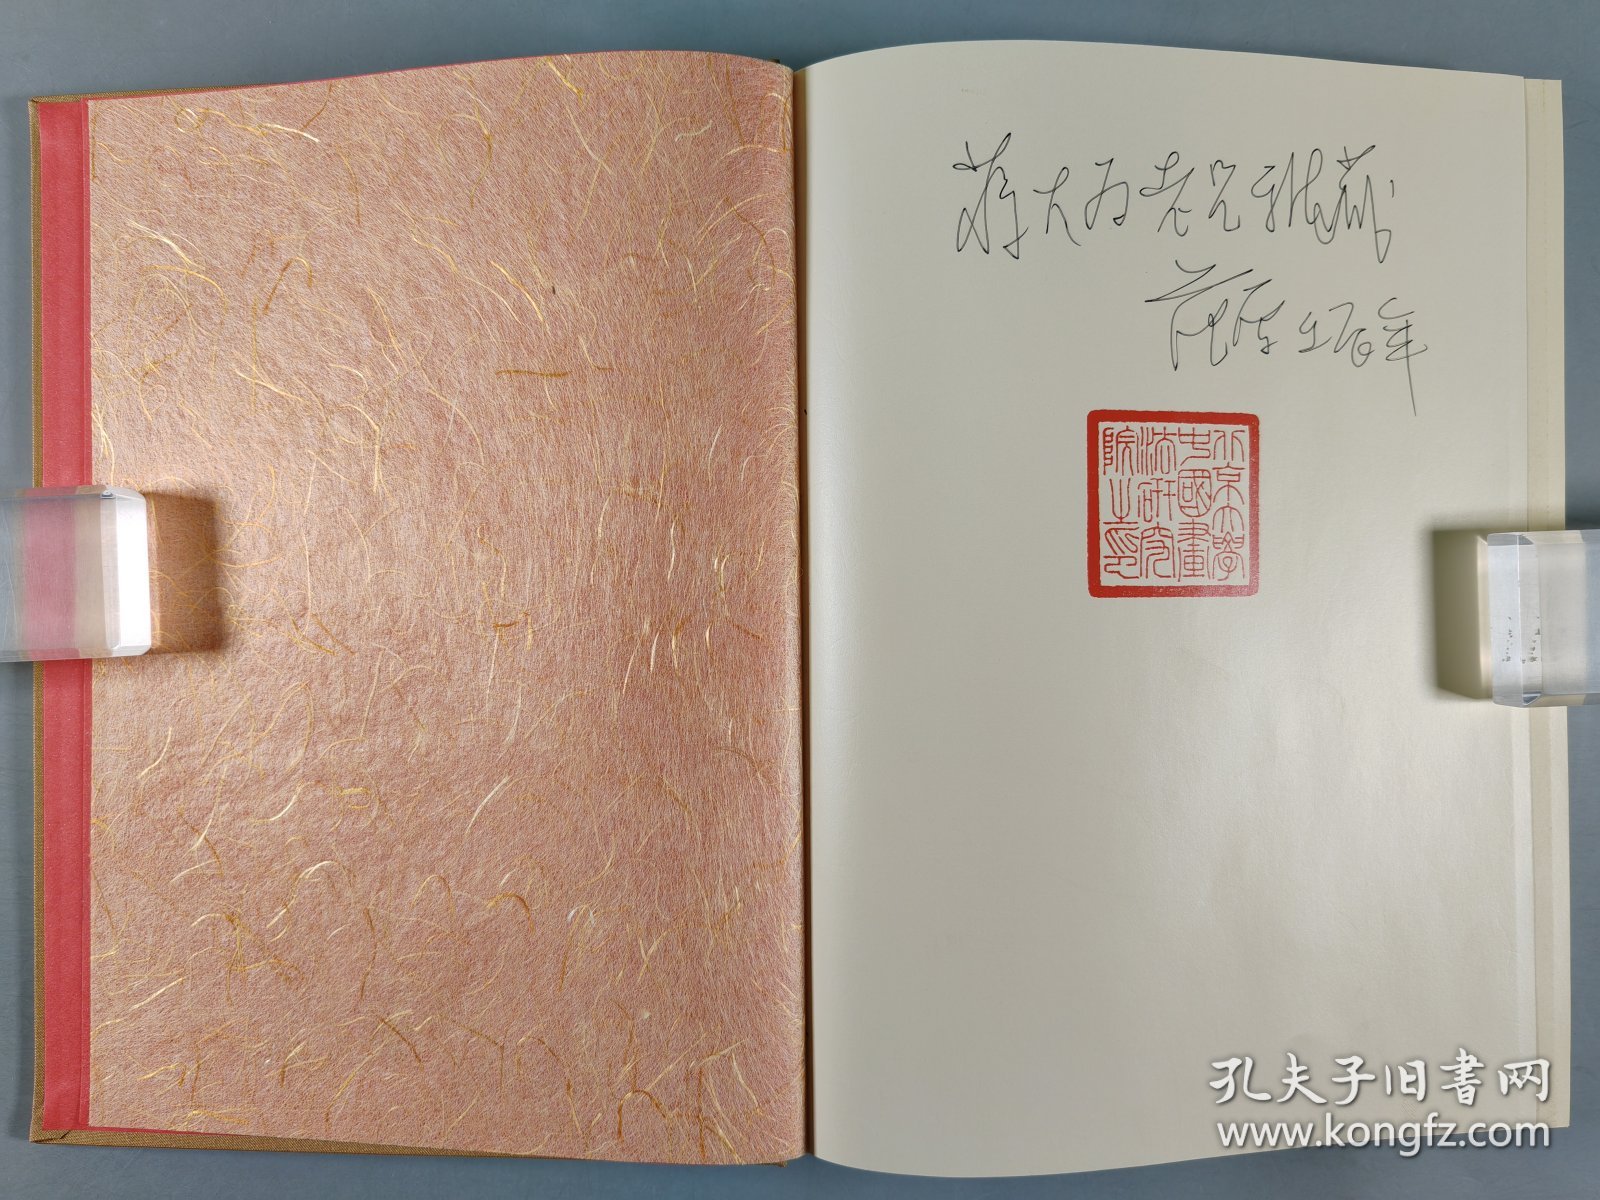 蒋大为老兄雅藏
范曾 壬辰年
北京大學
中國畫
法研究
院之印
孔夫子旧書网
www.kongfz.com